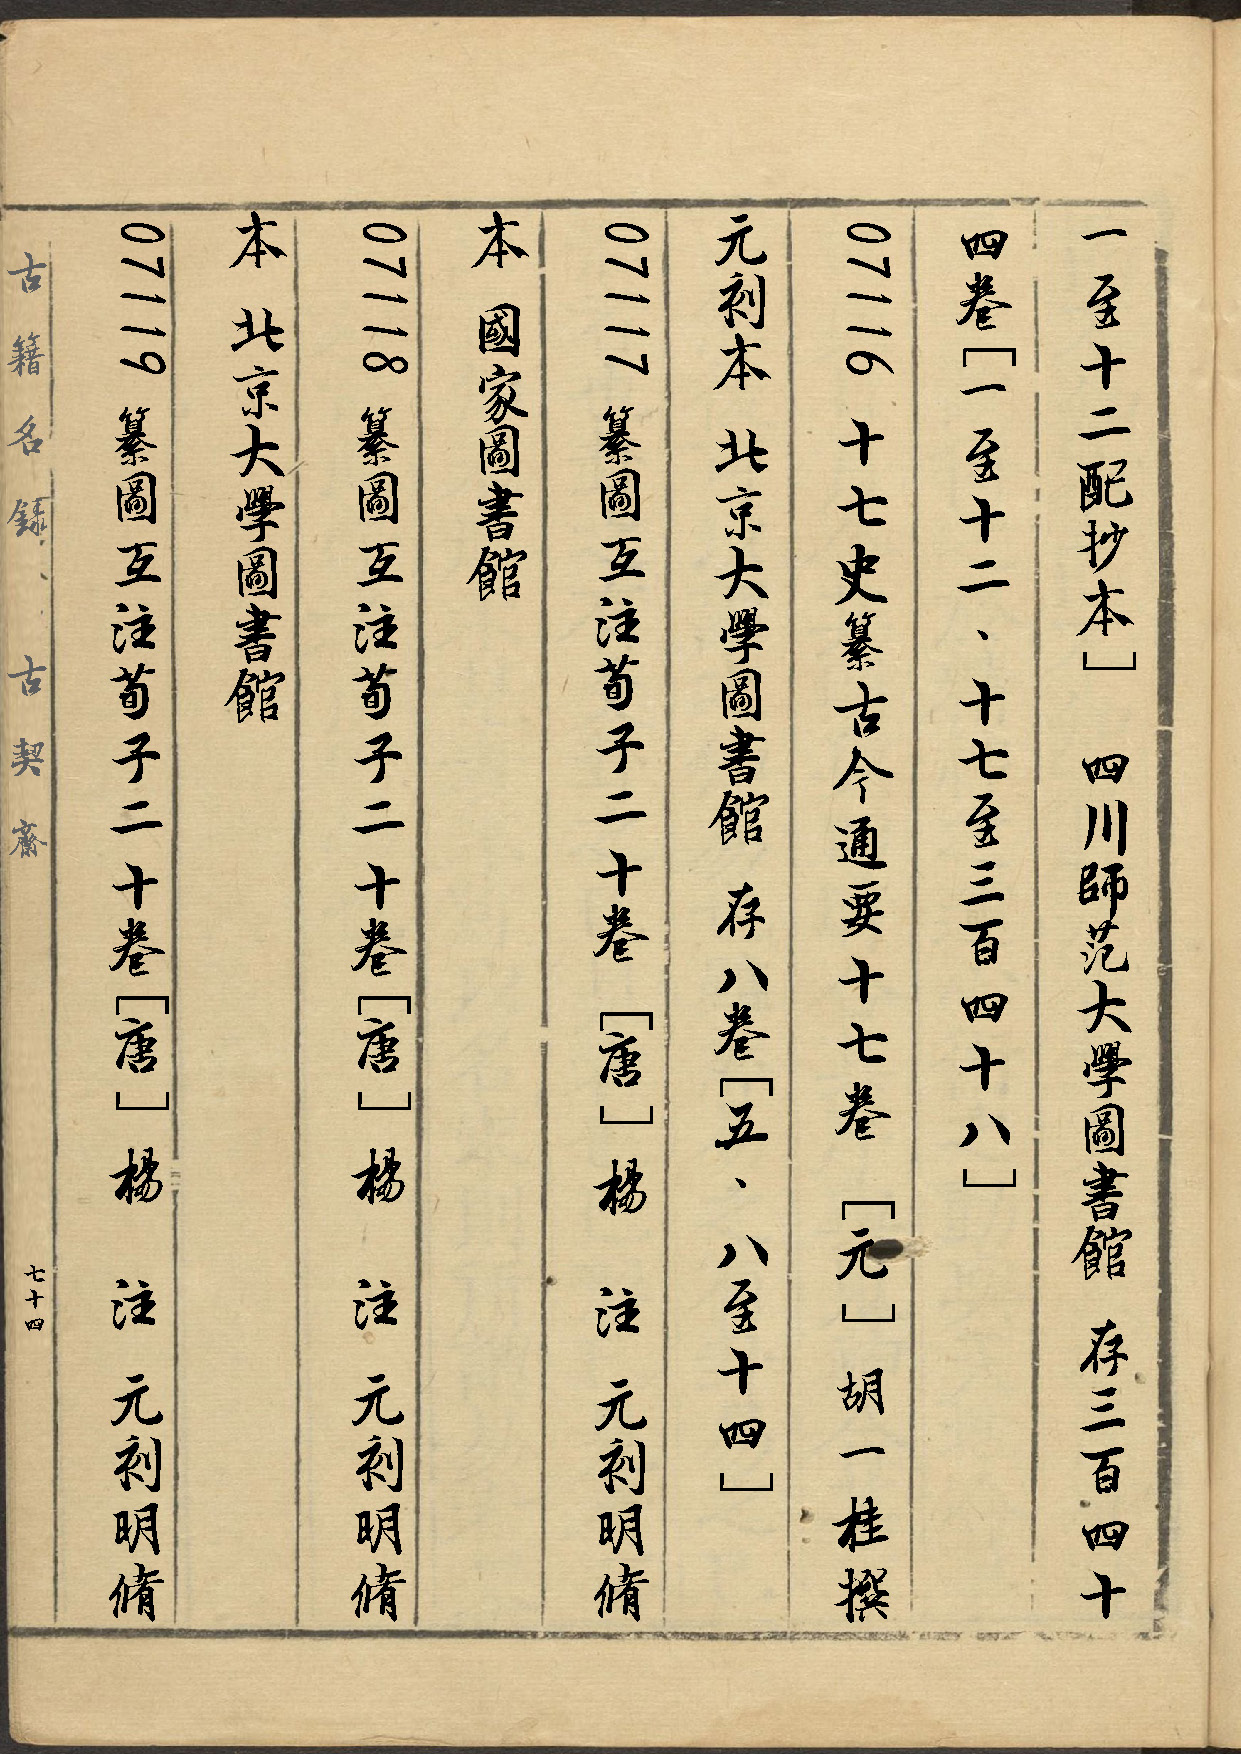 一至十二配抄本］　四川師范大學圖書館　存三百四十
四卷［一至十二、十七至三百四十八］
07116　十七史纂古今通要十七卷　［元］　胡一桂撰
元刻本　北京大學圖書館　存八卷［五、八至十四］
07117　纂圖互注荀子二十卷　［唐］　楊　注　元刻明脩
本　國家圖書館
07118　纂圖互注荀子二十卷［唐］　楊　注　元刻明脩
本　北京大學圖書館
07119　纂圖互注荀子二十卷［唐］　楊　注　元刻明脩
古籍名錄、古契齋
七十四